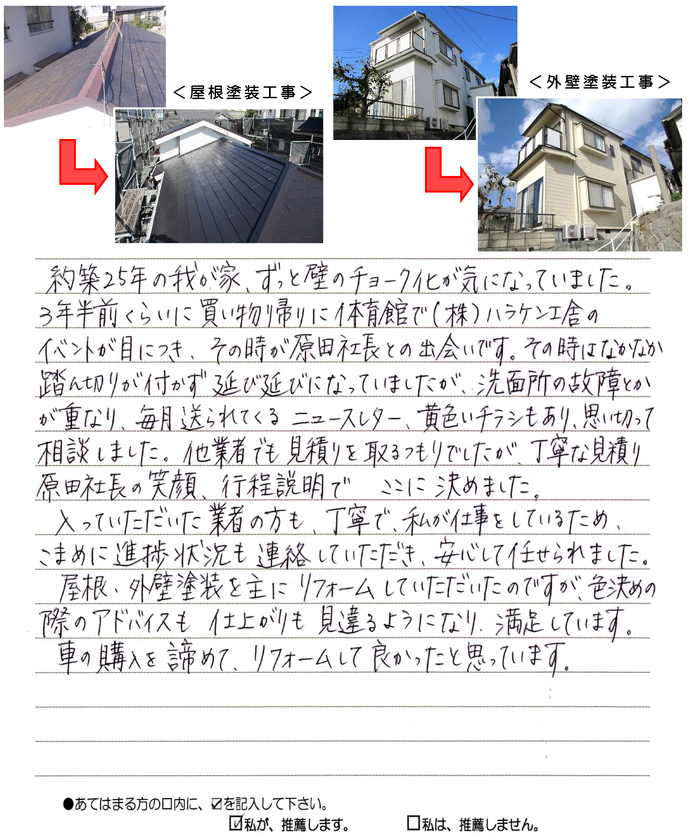 ＜屋根塗装工事＞
＜外壁塗装工事＞
約築25年の我が家、ずっと壁のチョーク化が気になっていました。
3年半前くらいに買い物帰りに体育館で(株)ハラケン工舎の
イベントが目につき、その時が原田社長との出会いです。その時はなかなか
踏ん切りが付かず延び延びになっていましたが、洗面所の故障とか
が重なり、毎月送られてくるニュースレター、黄色いチラシもあり、思い切って
相談しました。他業者でも見積りを取るつもりでしたが、丁寧な見積り
原田社長の笑顔、行程説明で ここに決めました。
入っていただいた業者の方も、丁寧で、私が仕事をしているため、
こまめに進捗状況も連絡していただき、安心して任せられました。
屋根、外壁塗装を主にリフォームしていただいたのですが、色決めの
際のアドバイスも 仕上がりも見違るようになり、満足しています。
車の購入を諦めて、リフォームして良かったと思っています。
●あてはまる方の口内に、☑を記入して下さい。
☑私が、推薦します。 □私は、推薦しません。